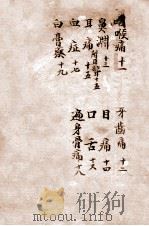 咽喉痛 十一
牙齿痛 十二
鼻渊 十三
目痛 十四
耳痛 十五
口舌 十六
血症 十七
遍身骨痛 十八
十九